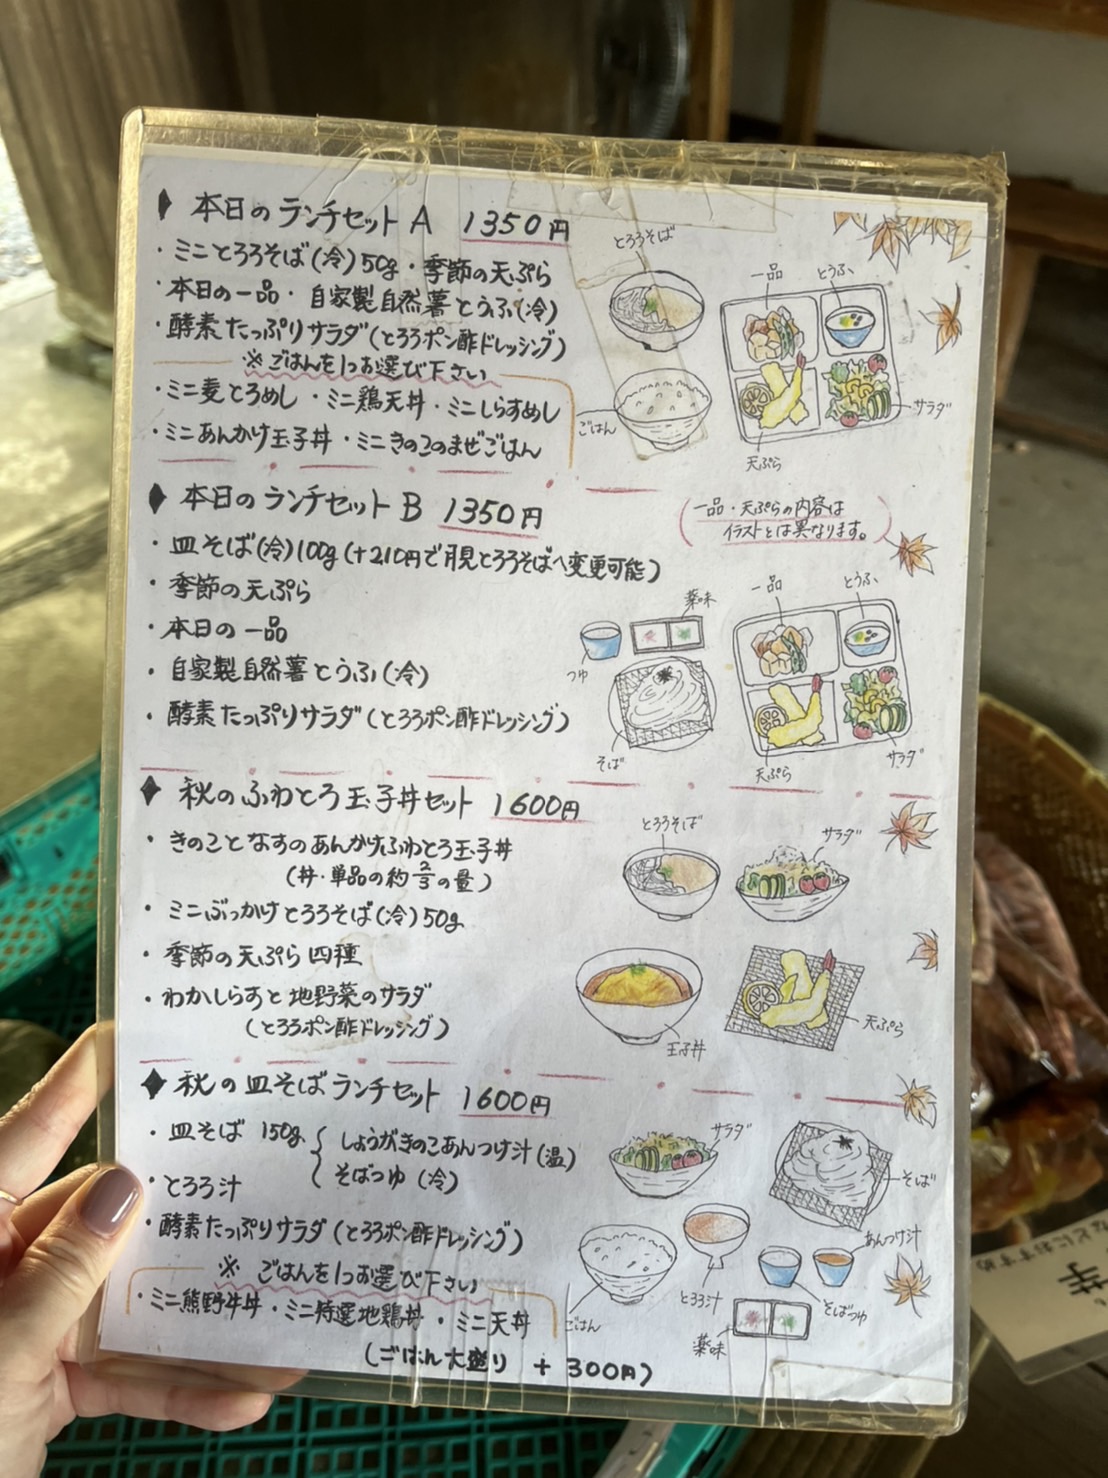 ◆ 本日のランチセット A 1350円
・ミニとろろそば(冷)50g・季節の天ぷら
・本日の一品・自家製自然薯とうふ(冷)
・酵素たっぷりサラダ(とろろポン酢ドレッシング)
※ごはんを1つお選び下さい
・ミニ麦とろめし・ミニ鶏天丼・ミニしらすめし
・ミニあんかけ玉子丼・ミニきのこのまぜごはん
とろろそば
一品
とうふ
ごはん
サラダ
天ぷら
◆ 本日のランチセット B 1350円
(一品・天ぷらの内容は
イラストとは異なります。)
・皿そば(冷)100g(+210円で月見とろろそばへ変更可能)
・季節の天ぷら
・本日の一品
・自家製自然薯とうふ(冷)
・酵素たっぷりサラダ(とろろポン酢ドレッシング)
薬味
一品
とうふ
つゆ
そば
天ぷら
サラダ
◆ 秋のふわとろ玉子丼セット 1600円
・きのことなすのあんかけふわとろ玉子丼
(丼・単品の約2/3の量)
・ミニぶっかけとろろそば(冷)50g
・季節の天ぷら四種
・わかしらすと地野菜のサラダ
(とろろポン酢ドレッシング)
とろろそば
サラダ
玉子丼
天ぷら
◆ 秋の皿そばランチセット 1600円
・皿そば 150g { しょうがきのこあんつけ汁(温)
そばつゆ(冷)
・とろろ汁
・酵素たっぷりサラダ(とろろポン酢ドレッシング)
※ ごはんを1つお選び下さい
・ミニ熊野牛丼・ミニ特選地鶏丼・ミニ天丼
(ごはん大盛り +300円)
サラダ
そば
あんつけ汁
ごはん
とろろ汁
そばつゆ
薬味
などにおすすめ